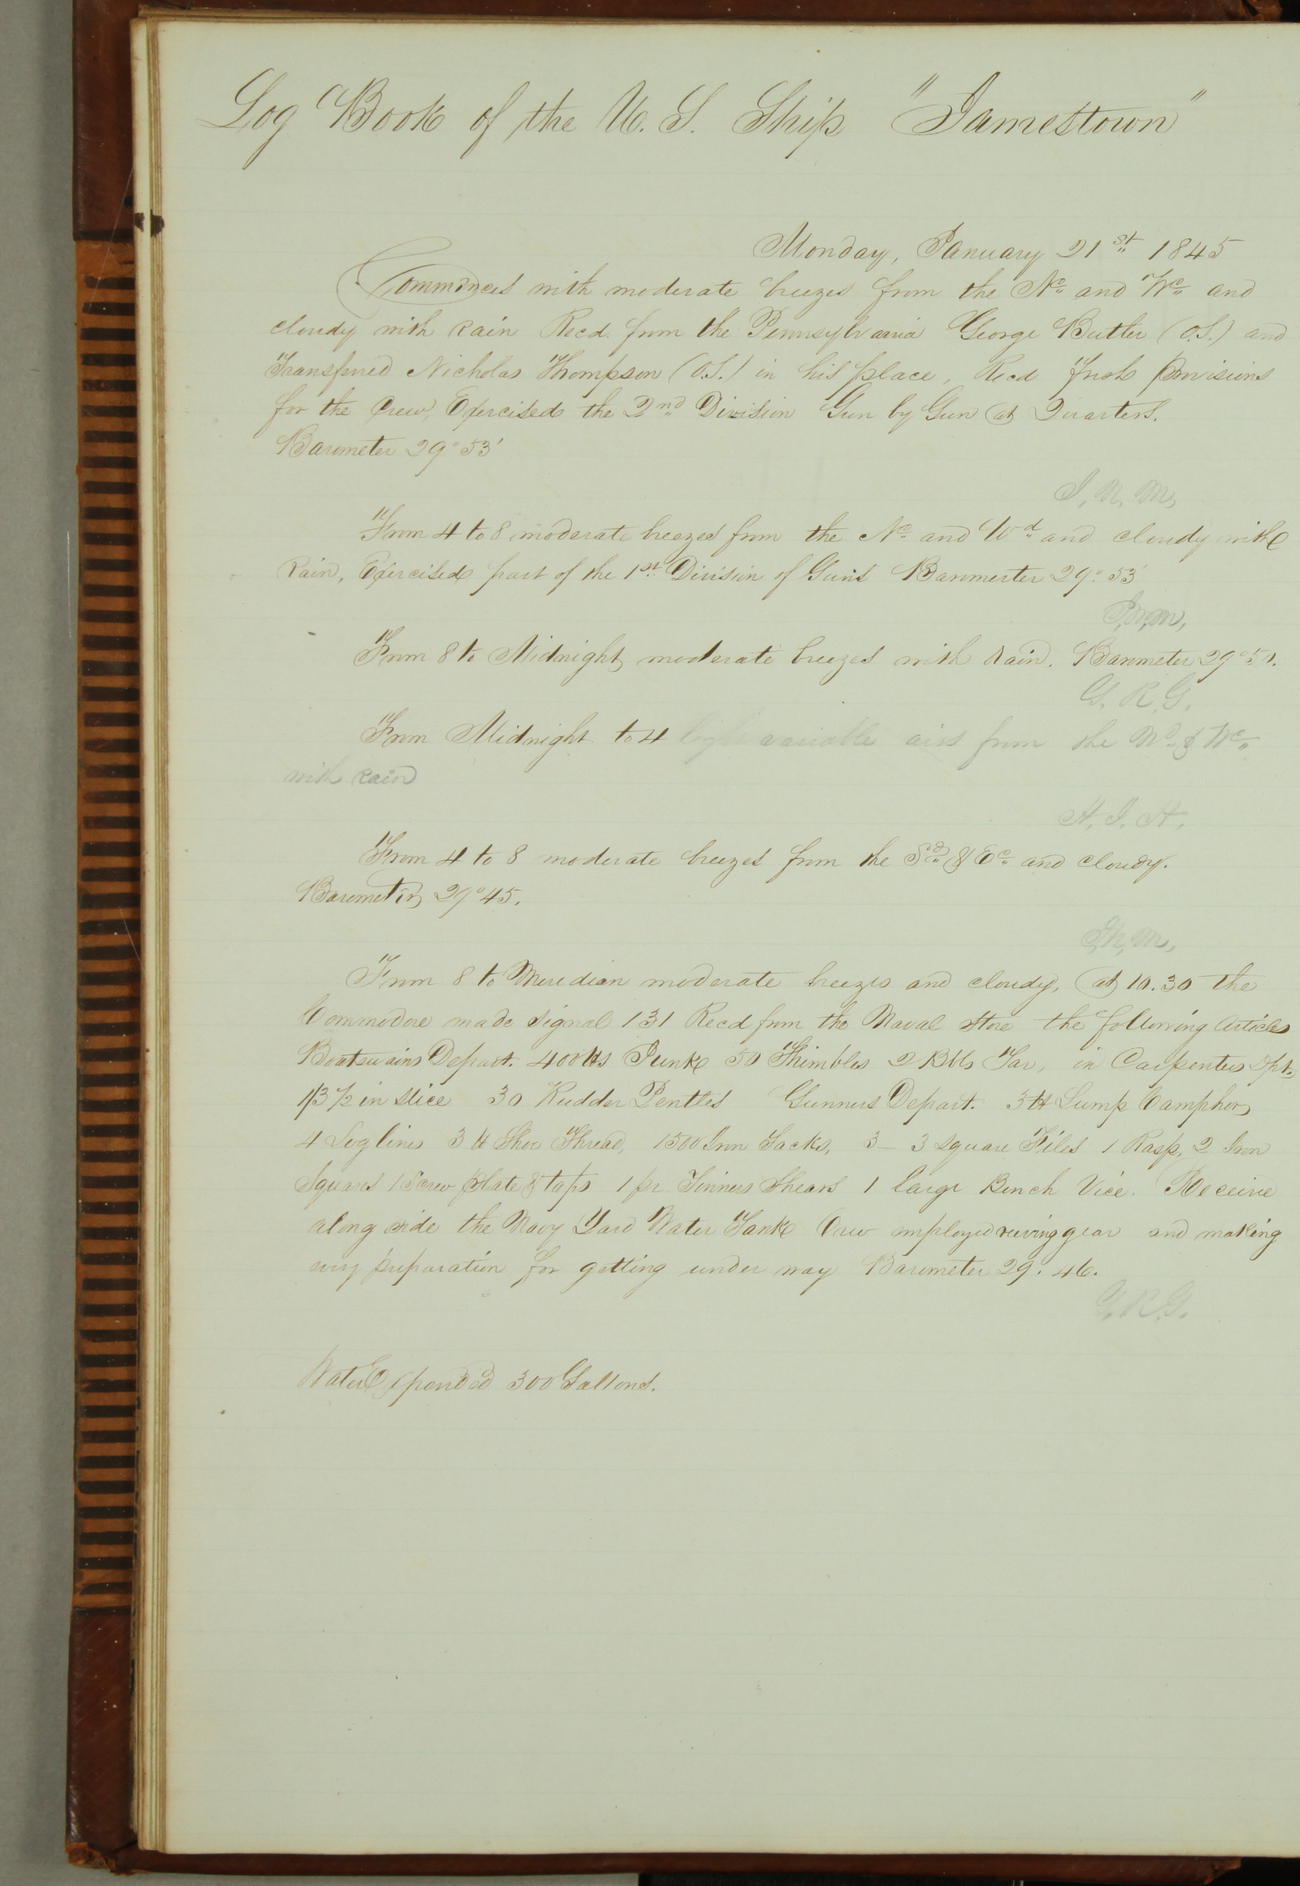 Log Book of the U. S. Ship "Jamestown"
Monday, January 21st 1845
Commences with moderate breezes from the Nd and Wd and
cloudy with rain Recd from the Pennsylvania George Butler (O.S.) and
Transferred Nicholas Thompson (O.S.) in his place, Recd fresh Provisions
for the Crew, Exercised the 2nd Division Gun by Gun at Quarters.
Barometer 29° 53'
From 4 to 8 moderate breezes from the Nd and Wd and cloudy with
Rain, Exercised part of the 1st Division of Guns Baromester 29° 53
From 8 to Midnight moderate breezes with rain. Barometer 29° 51.
G. R. G.
From Midnight to 4 light variable airs from the Nd & Wd
with rain
H. I. H.
From 4 to 8 moderate breezes from the Sd & Ed and cloudy.
Barometer 29° 45.
From 8 to Meridian moderate breezes and cloudy, at 10.30 the
Commodore made signal 131 Recd from the Naval Store the following Articles
Boatswains Depart. 400 lbs Junk 50 Thimbles 2 Bbls Tar, in Carpenters Dpt.
1/3 1/2 in slice 30 Rudder Pentles Gunners Depart. 3 lb Lump Camphor,
4 Log lines 3 lb Shoe Thread, 1500 Iron Tacks, 3 - 3 square Files 1 Rasp, 2 Iron
Squares 1 Screw plate & taps 1 pr Tinners Shears 1 large Bench Vice. Receive
along side the Navy Yard Water Tank Crew employed reeving gear and making
every preparation for getting under way Barometer 29. 46.
G. R. G.
Water Expended 300 Gallons.